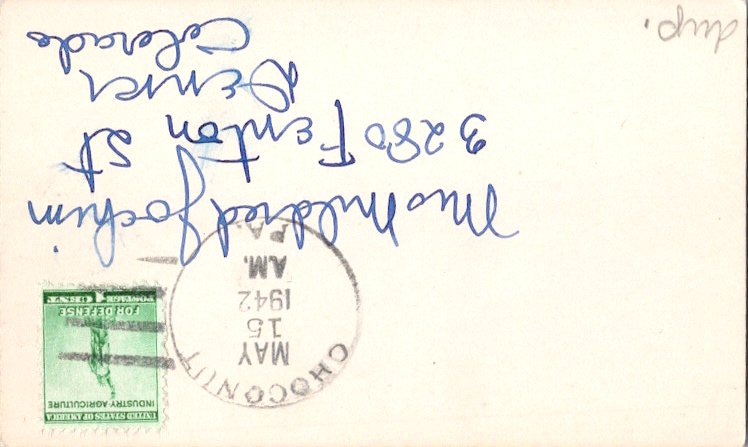 CHOCONUT
MAY
15
1942
A.M.
PA.
UNITED STATES OF AMERICA
INDUSTRY·AGRICULTURE
FOR DEFENSE
POSTAGE 1 CENT
Mrs Mildred Jochim
3280 Fenton St
Denver
Colorado
dup.